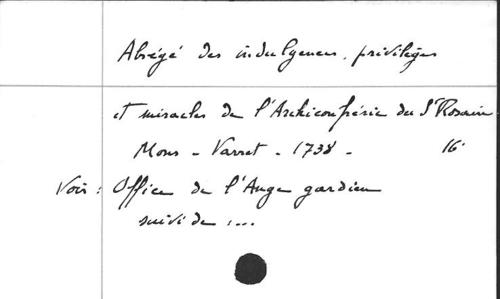 Abrégé des indulgences, privilèges
et miracles de l'Archiconfrérie du St Rosaire
Mons - Varret - 1738 - 16°
Voir : Office de l'Ange gardien
suivi de : ...